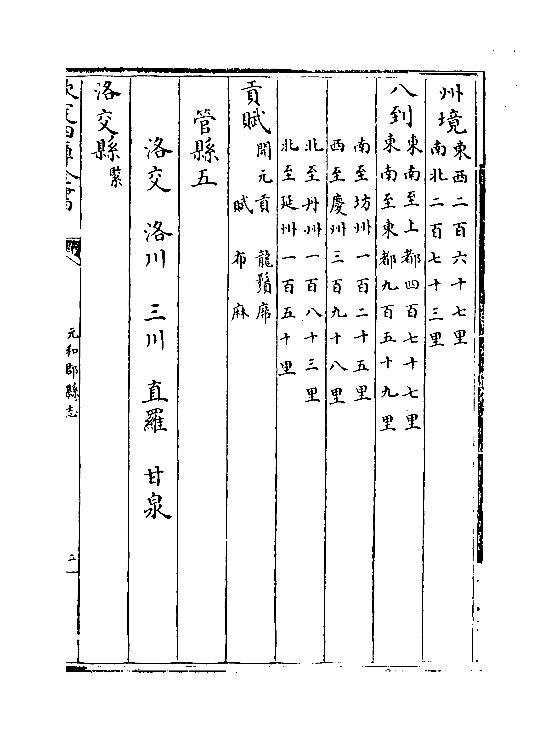 州境 東西二百六十七里
南北二百七十三里
八到 東南至上都四百七十七里
東南至東都九百五十九里
南至坊州一百二十五里
西至慶州三百九十八里
北至丹州一百八十三里
北至延州一百五十里
貢賦 開元貢 龍鬚席
賦 布麻
管縣五
洛交 洛川 三川 直羅 甘泉
洛交縣 緊
欽定四庫全書 元和郡縣志